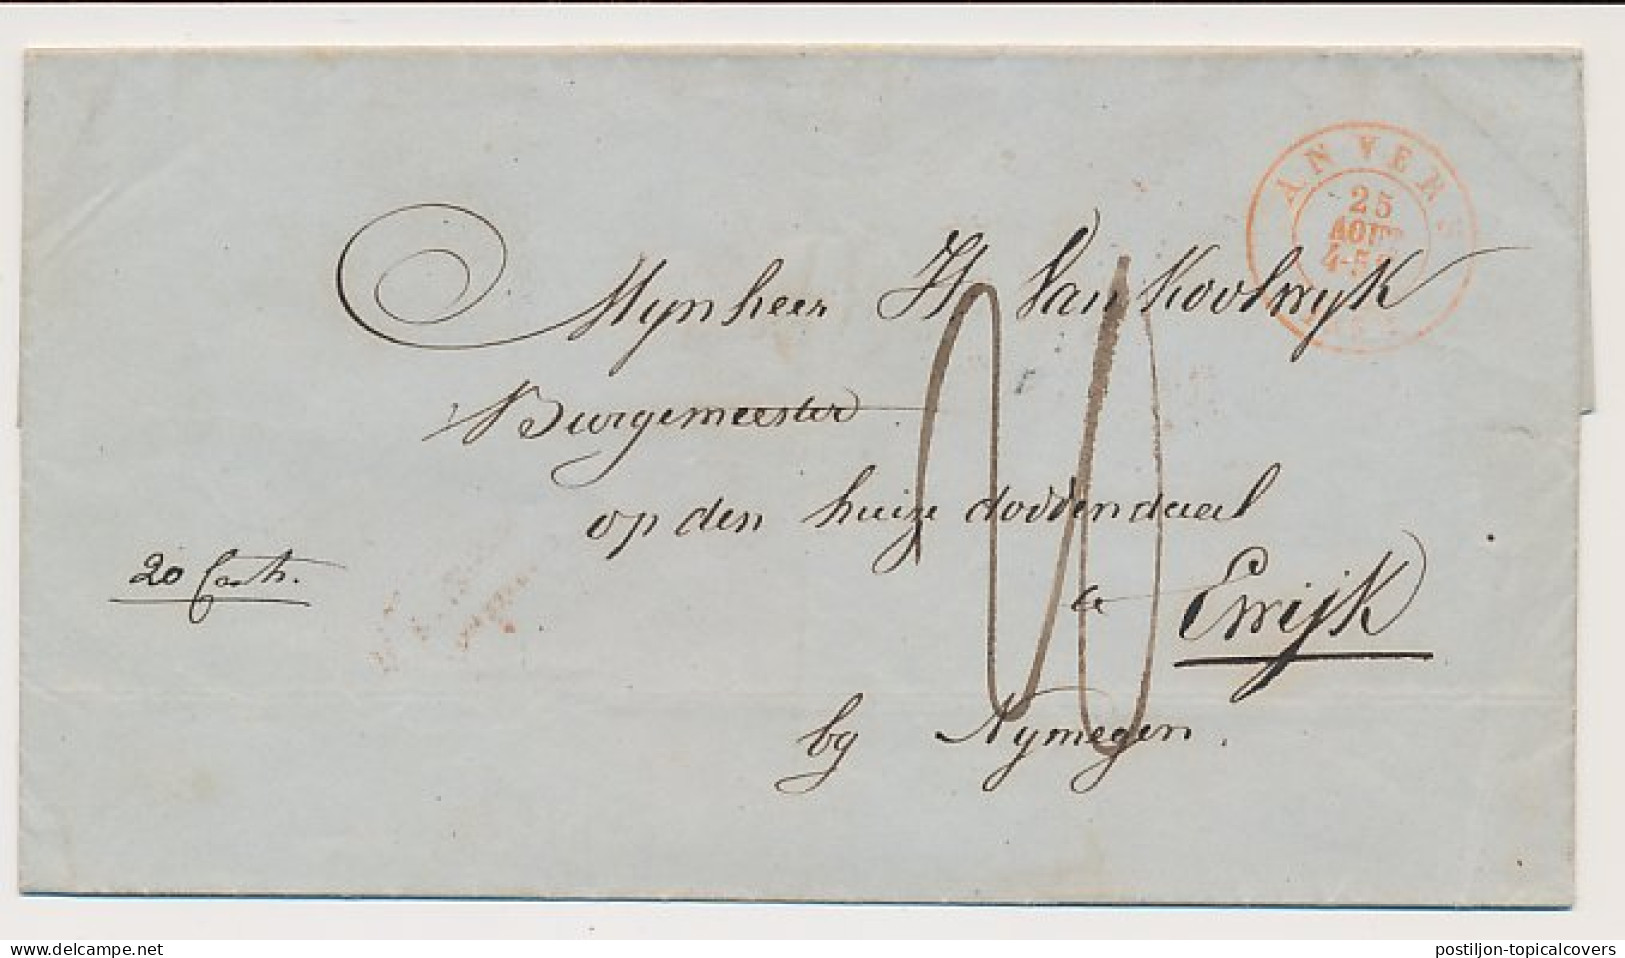 ANVERS
25
AOUT
4-5
Mynheer H Van Koolwyk
Burgemeester
op den huize doddendaal
20 Cents.
a Ewijk
by Nymegen.
20
www.delcampe.net
postiljon-topicalcovers